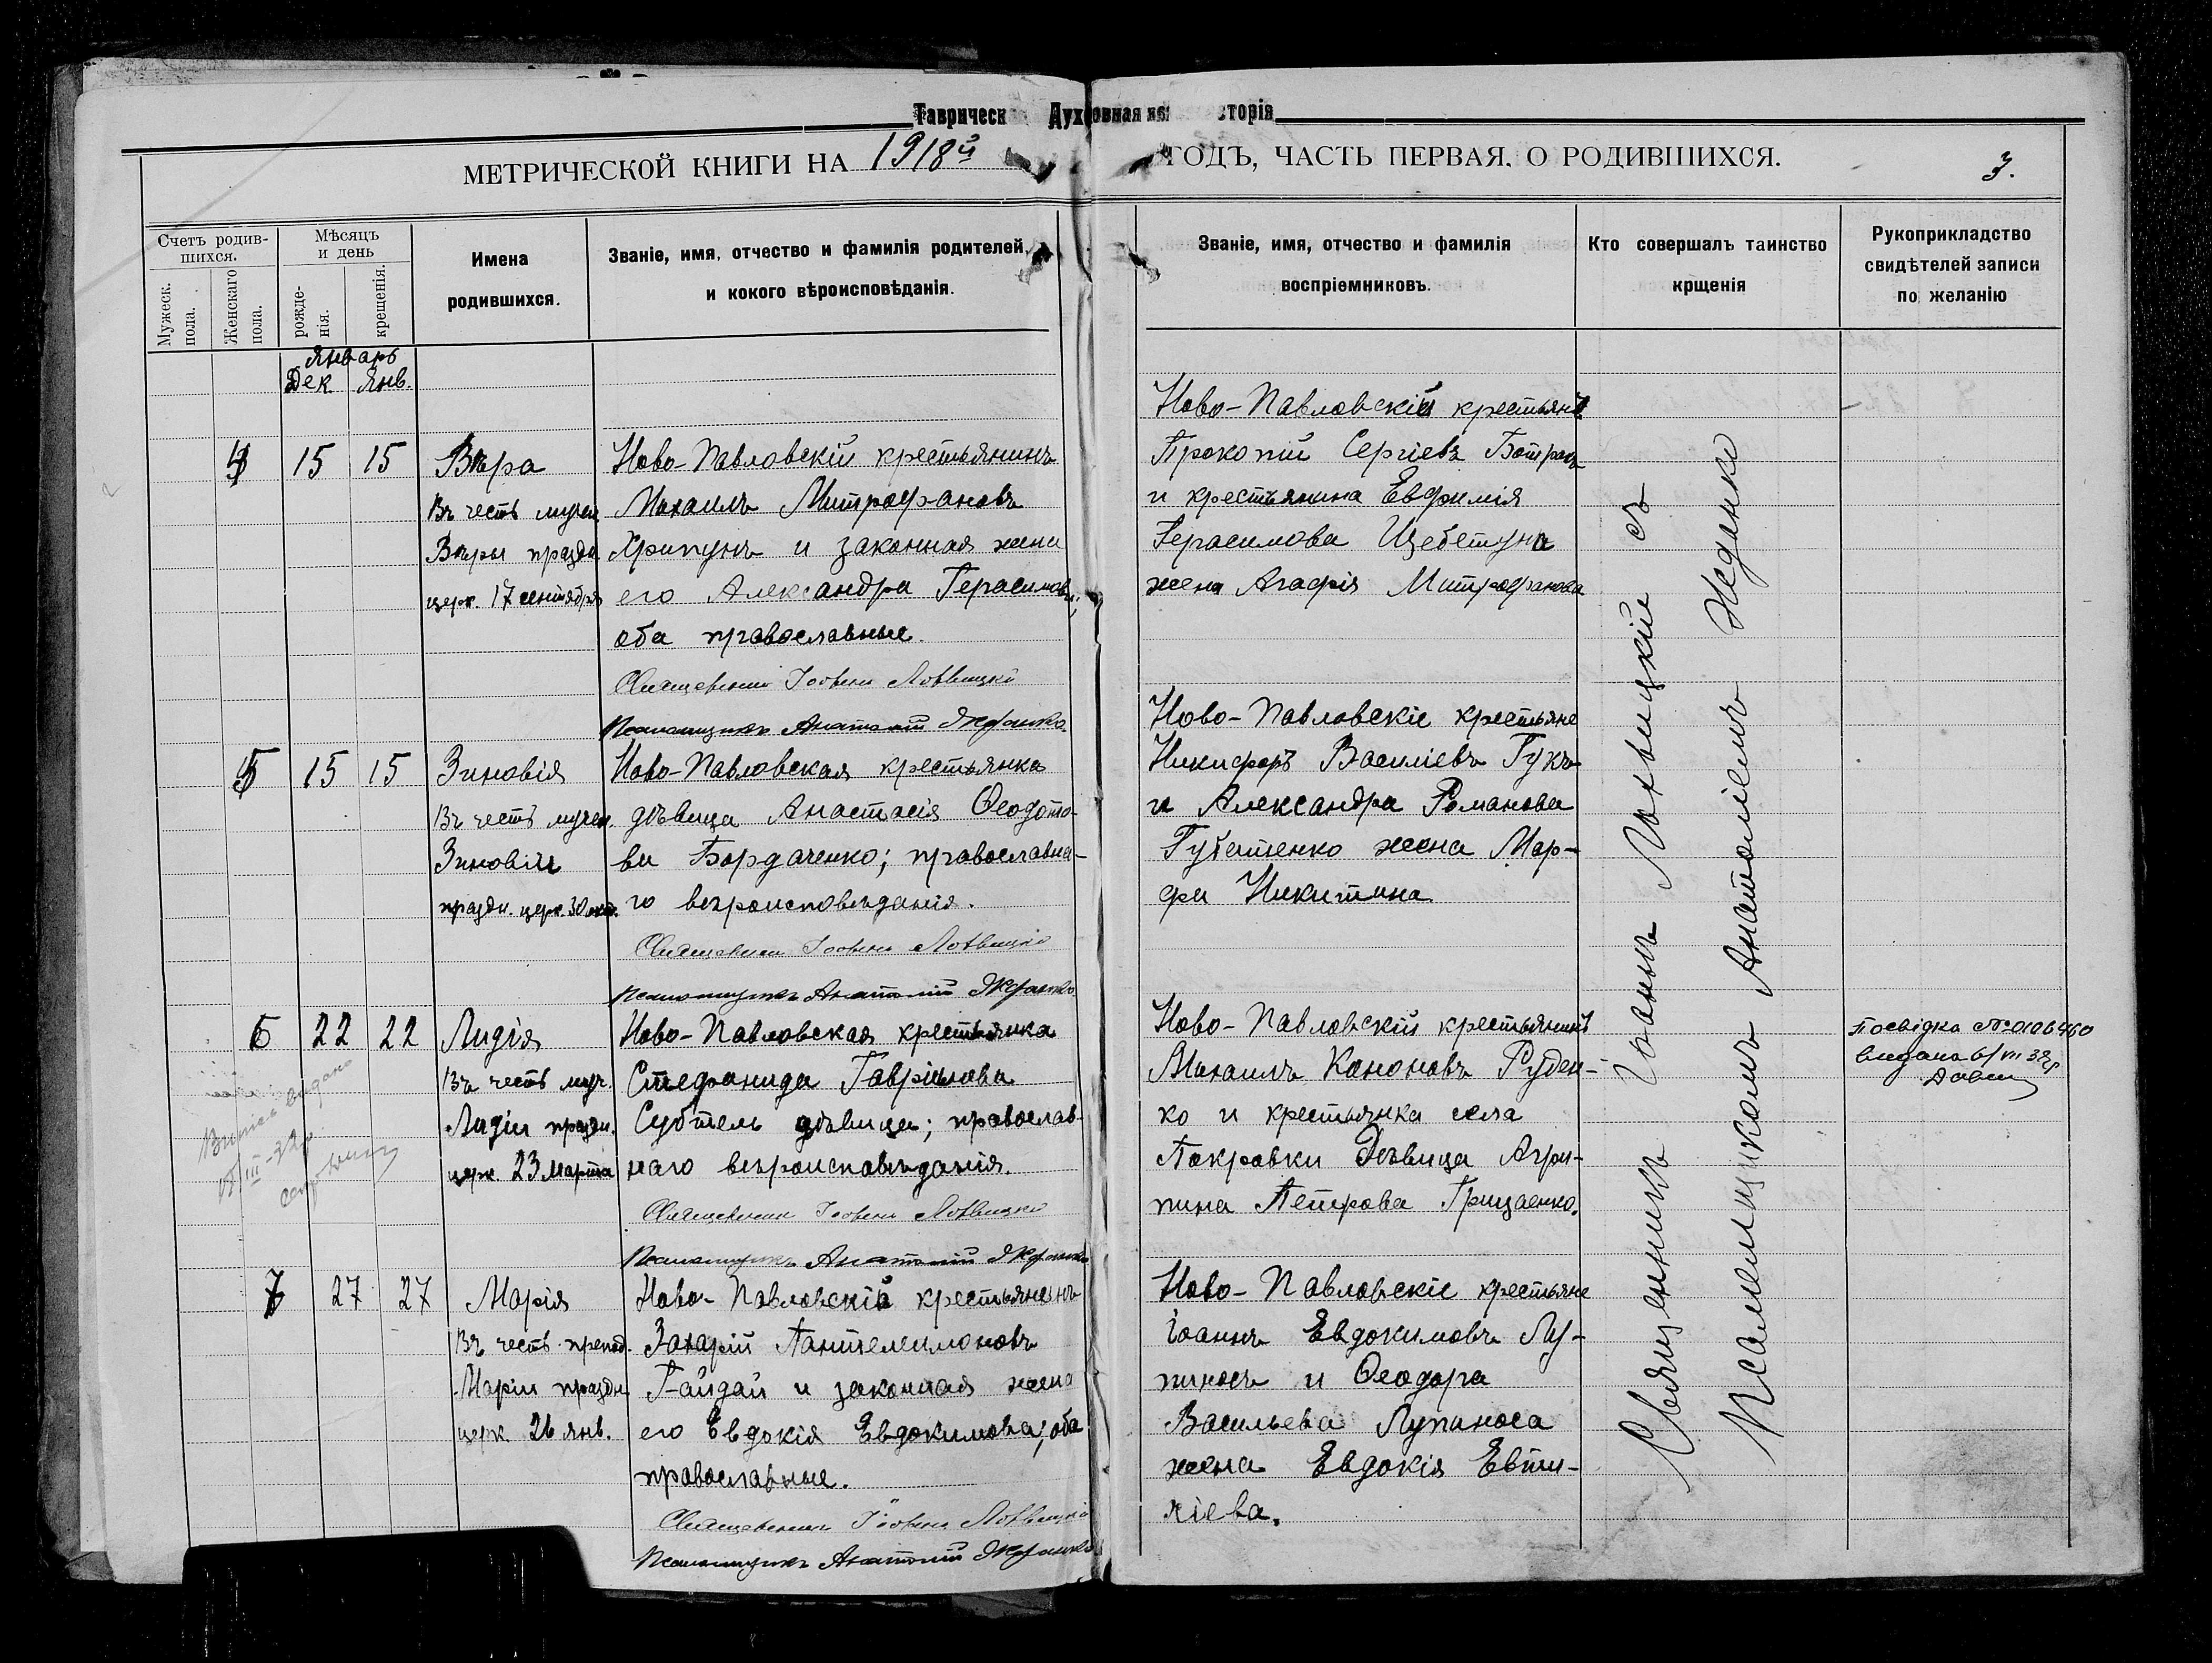 Таврическ Духовная ко сторія
МЕТРИЧЕСКОЙ КНИГИ НА 1918й ГОДЪ, ЧАСТЬ ПЕРВАЯ, О РОДИВШИХСЯ.
3.
Счетъ родив-
шихся.
Мужеск.
пола.
Женскаго
пола.
Мѣсяцъ
и день
рожде-
нія.
крещенія.
Имена
родившихся.
Званіе, имя, отчество и фамилія родителей,
и кокого вѣроисповѣданія.
Званіе, имя, отчество и фамилія
воспріемниковъ.
Кто совершалъ таинство
крщенія
Рукоприкладство
свидѣтелей записи
по желанію
Январь
Дек Янв.
4 15 15
Вѣра
Въ честь мучен
Вѣры праздн
церк. 17 сентября
Ново-Павловскій крестьянинъ
Михаилъ Митрофановъ
Хрипунъ и законная жена
его Александра Герасимова;
оба православные.
Священникъ Іоаннъ Лотвицкій
Псаломщикъ Анатолій Жеданко
Ново-Павловскій крестьянинъ
Прокопій Сергіевъ
и крестьянина Евфимія
Герасимова Щебетуна
жена Агафія Митрофанова
5 15 15
Зиновія
Въ честь мучен.
Зиновіи
праздн. церк. 30 окт.
Ново-Павловская крестьянка
дѣвица Анастасія Ѳеодото-
ва Бордаченко; православна-
го вѣроисповѣданія.
Священникъ Іоаннъ Лотвицкій
Псаломщикъ Анатолій Жеданко
Ново-Павловскіе крестьяне
Никифоръ Василіевъ Гукъ
и Александра Романова
Губатенко жена Мар-
фа Никитина
6 22 22
Лидія
Въ честь муч.
Лидіи праздн.
церк. 23 марта
Ново-Павловская крестьянка
Стефанида Гавріилова
Субтель дѣвица; православ-
наго вѣроисповѣданія.
Священникъ Іоаннъ Лотвицкій
Псаломщикъ Анатолій Жеданко
Ново-Павловскій крестьянинъ
Михаилъ Кононовъ Руден-
ко и крестьянка села
Покровки Дѣвица Агри-
пина Петрова Грицаенко.
Посвідка № 0106460
видана 6/VII 38р
Випись видана
7 27 27
Марія
Въ честь препод.
Маріи праздн
церк. 26 янв.
Ново-Павловскій крестьянинъ
Захарій Пантелеимоновъ
Гайдай и законная жена
его Евдокія Евдокимова; оба
православные.
Священникъ Іоаннъ Лотвицкій
Псаломщикъ Анатолій Жеданко
Ново-Павловскіе крестьяне
Іоаннъ Евдокимовъ Лу-
пиносъ и Ѳеодора
Васильева Лупиноса
жена Евдокія Евти-
хіева.
Священникъ Іоаннъ Лотвицкій съ
Псаломщикомъ Анатоліемъ Жеданко